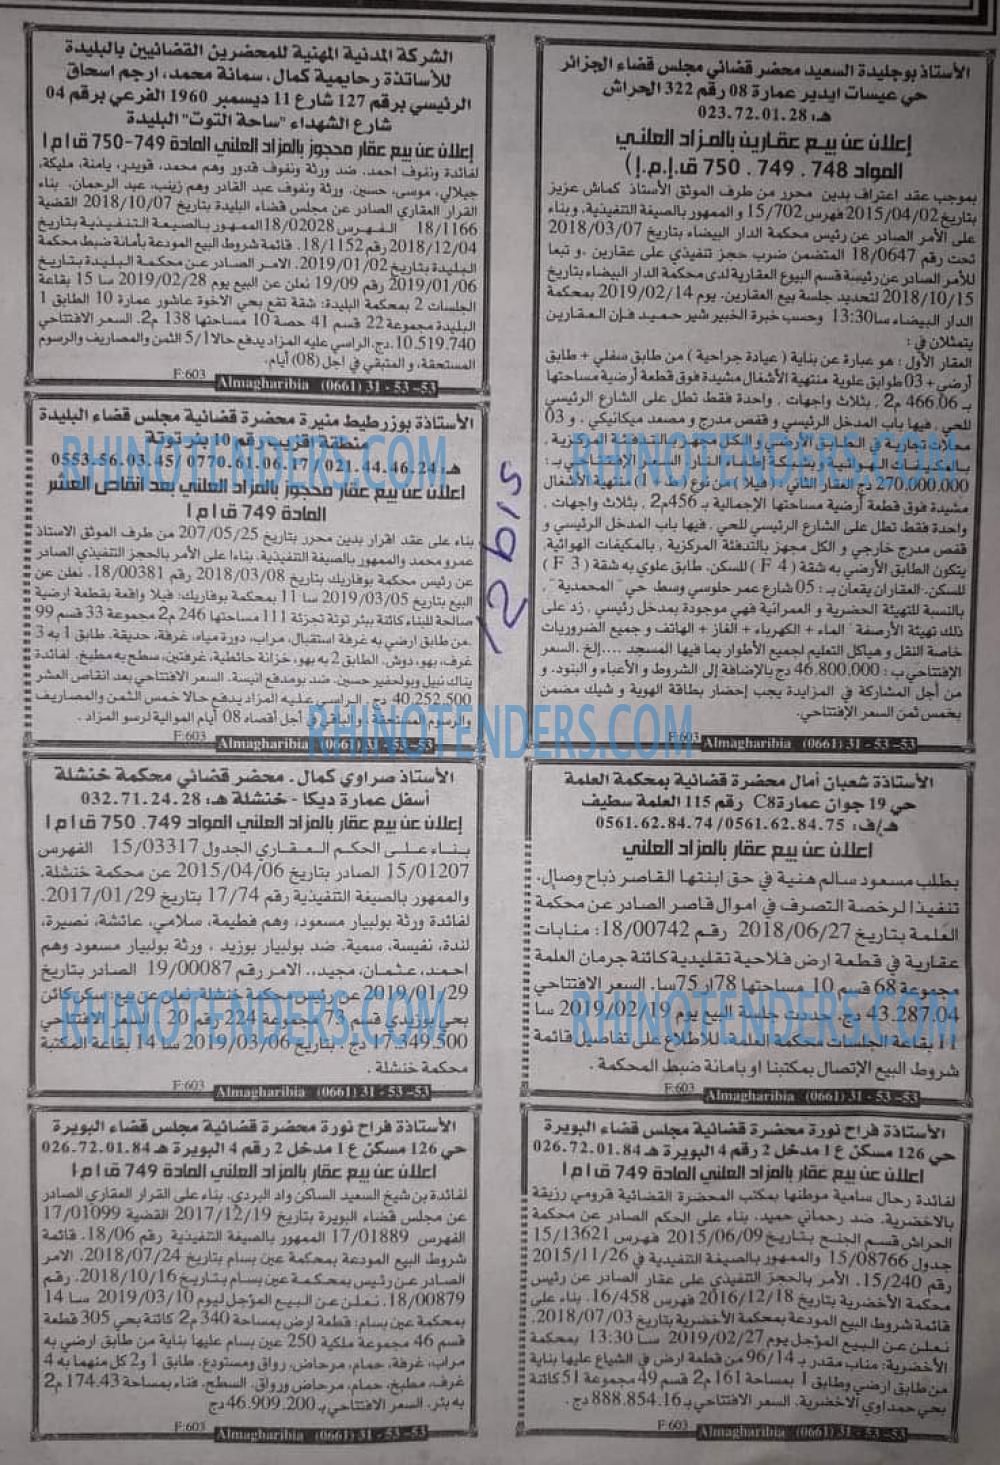 الأستاذ بوجليدة السعيد محضر قضائي مجلس قضاء الجزائر
حي عيسات ايدير عمارة 08 رقم 322 الحراش
هـ: 023.72.01.28
إعلان عن بيع عقارين بالمزاد العلني
المواد 748 . 749 . 750 ق.إ.م.إ)
بموجب عقد اعتراف بدين محرر من طرف الموثق الأستاذ كماش عزيز
بتاريخ 2015/04/02 فهرس 15/702 و الممهور بالصيغة التنفيذية، وبناء
على الأمر الصادر عن رئيس محكمة الدار البيضاء بتاريخ 2018/03/07
تحت رقم 18/0647 المتضمن ضرب حجز تنفيذي على عقارين ، و تبعا
للأمر الصادر عن رئيسة قسم البيوع العقارية لدى محكمة الدار البيضاء بتاريخ
2018/10/15 لتحديد جلسة بيع العقارين. يوم 2019/02/14 بمحكمة
الدار البيضاء سا13:30 وحسب خبرة الخبير شير حميد فإن العقارين
يتمثلان في :
العقار الأول : هو عبارة عن بناية ( عيادة جراحية ) من طابق سفلي + طابق
أرضي + 03 طوابق علوية منتهية الأشغال مشيدة فوق قطعة أرضية مساحتها
بـ 466.06 م2 ، بثلاث واجهات . واحدة فقط تطل على الشارع الرئيسي
للحي ، فيها باب المدخل الرئيسي و قفص مدرج و مصعد ميكانيكي . و 03
محلات تجارية في الطابق الأرضي و الكل مجهز بالتدفئة المركزية ,
بالمكيفات الهوائية و بشبكة إطفاء النار. السعر الإفتتاحي بـ :
270.000.000 دج العقار الثاني : فيلا ( من نوع ط + 1) منتهية الأشغال
مشيدة فوق قطعة أرضية مساحتها الإجمالية بـ 456م2 ، بثلاث واجهات ،
واحدة فقط تطل على الشارع الرئيسي للحي ، فيها باب المدخل الرئيسي و
قفص مدرج خارجي و الكل مجهز بالتدفئة المركزية ، بالمكيفات الهوائية,
يتكون الطابق الأرضي به شقة ( F 4 ) للسكن. طابق علوي به شقة ( F 3 )
للسكن. العقاران يقعان بـ : 05 شارع عمر حلوسي وسط حي "المحمدية" ,
بالنسبة للتهيئة الحضرية و العمرانية فهي موجودة بمدخل رئيسي . زد على
ذلك تهيئة الأرصفة "الماء + الكهرباء + الغاز + الهاتف و جميع الضروريات
خاصة النقل و هياكل التعليم لجميع الأطوار بما فيها المسجد ....إلخ .السعر
الإفتتاحي ب : 46.800.000 دج بالإضافة إلى الشروط و الأعباء و البنود. و
من أجل المشاركة في المزايدة يجب إحضار بطاقة الهوية و شيك مضمن
بخمس ثمن السعر الإفتتاحي.
F:603 Almagharibia (0661) 31 - 53 -53
الأستاذة شعبان أمال محضرة قضائية بمحكمة العلمة
حي 19 جوان عمارة C8 رقم 115 العلمة سطيف
هـ/ف: 0561.62.84.75/ 0561.62.84.74
اعلان عن بيع عقار بالمزاد العلني
بطلب مسعود سالم هنية في حق ابنتها القاصر ذباح وصال.
تنفيذا لرخصة التصرف في اموال قاصر الصادر عن محكمة
العلمة بتاريخ 2018/06/27 رقم 18/00742: منابات
عقارية في قطعة ارض فلاحية تقليدية كائنة جرمان العلمة
مجموعة 68 قسم 10 مساحتها 78ار 75سا. السعر الافتتاحي
43.287.04 دج. حددت جلسة البيع يوم 2019/02/19 سا
11 بقاعة الجلسات محكمة العلمة. للاطلاع على تفاصيل قائمة
شروط البيع الإتصال بمكتبنا او بامانة ضبط المحكمة .
F:603 Almagharibia (0661) 31 - 53 -53
الأستاذة فراح نورة محضرة قضائية مجلس قضاء البويرة
حي 126 مسكن ع 1 مدخل 2 رقم 4 البويرة هـ 026.72.01.84
إعلان عن بيع عقار بالمزاد العلني المادة 749 ق ا م ا
لفائدة رحال سامية موطنها بمكتب المحضرة القضائية قرومي رزيقة
بالاخضرية. ضد رحماني حميد. بناء على الحكم الصادر عن محكمة
الحراش قسم الجنح بتاريخ 2015/06/09 فهرس 15/13621
جدول 15/08766 والممهور بالصيغة التنفيذية في 2015/11/26
رقم 15/240. الأمر بالحجز التنفيذي على عقار الصادر عن رئيس
محكمة الأخضرية بتاريخ 2016/12/18 فهرس 16/458. بناء على
قائمة شروط البيع المودعة بمحكمة الأخضرية بتاريخ 2018/07/03.
نعلن عن البيع المؤجل يوم 2019/02/27 سا 13:30 بمحكمة
الأخضرية: مناب مقدر بـ 96/14 من قطعة ارض في الشياع عليها بناية
من طابق ارضي وطابق 1 بمساحة 161 م2 قسم 49 مجموعة 51 كائنة
بحي حمداوي الاخضرية. السعر الافتتاحي بـ 888.854.16 دج .
F:603 Almagharibia (0661) 31 - 53 -53
الشركة المدنية المهنية للمحضرين القضائيين بالبليدة
للأساتذة رحايمية كمال . سمانة محمد، ارجم اسحاق
الرئيسي برقم 127 شارع 11 ديسمبر 1960 الفرعي برقم 04
شارع الشهداء "ساحة التوت" البليدة
إعلان عن بيع عقار محجوز بالمزاد العلني المادة 749-750 ق ا م ا
لفائدة ونفوف احمد. ضد ورثة ونفوف قدور وهم محمد، قويدر، يامنة، مليكة،
جيلالي، موسى، حسين. ورثة ونفوف عبد القادر وهم زينب، عبد الرحمان. بناء
القرار العقاري الصادر عن مجلس قضاء البليدة بتاريخ 2018/10/07 القضية
18/1166 الفهرس 18/02028 الممهور بالصيغة التنفيذية بتاريخ
2018/12/04 رقم 18/1152. قائمة شروط البيع المودعة بأمانة ضبط محكمة
البليدة بتاريخ 2019/01/02. الامر الصادر عن محكمة البليدة بتاريخ
2019/01/06 رقم 19/09 نعلن عن البيع يوم 2019/02/28 سا 15 بقاعة
الجلسات 2 بمحكمة البليدة: شقة تقع بحي الاخوة عاشور عمارة 10 الطابق 1
البليدة مجموعة 22 قسم 41 حصة 10 مساحتها 138 م2. السعر الافتتاحي
10.519.740 دج. الراسي عليه المزاد يدفع حالا 5/1 الثمن والمصاريف والرسوم
المستحقة، و المتبقي في اجل (08) أيام.
F:603 Almagharibia (0661) 31 - 53 -53
الأستاذة بوزرطيط منيرة محضرة قضائية مجلس قضاء البليدة
منطقة اقزيب رقم 10 بئر توتة
هـ: 021.44.46.24 / 0770.61.06.17 /0553.56.03.45
اعلان عن بيع عقار محجوز بالمزاد العلني بعد انقاص العشر
المادة 749 ق ا م ا
بناء على عقد اقرار بدين محرر بتاريخ 207/05/25 من طرف الموثق الاستاذ
عمرو محمد والممهور بالصيغة التنفيذية. بناءا على الأمر بالحجز التنفيذي الصادر
عن رئيس محكمة بوفاريك بتاريخ 2018/03/08 رقم 18/00381. نعلن عن
البيع بتاريخ 2019/03/05 سا 11 بمحكمة بوفاريك: فيلا واقعة بقطعة ارضية
صالحة للبناء كائنة ببئر توتة تجزئة 111 مساحتها 246 م2 مجموعة 33 قسم 99
.من طابق ارضي به غرفة استقبال، مراب، دورة مياه، غرفة، حديقة. طابق 1 به 3
غرف، بهو، دوش. الطابق 2 به بهو، خزانة حائطية، غرفتين، سطح به مطبخ. لفائدة
يناك نبيل وبولحفير حسين. ضد بومدفع انيسة. السعر الافتتاحي بعد انقاص العشر
40.252.500 دج. الراسي عليه المزاد يدفع حالا خمس الثمن والمصاريف
والرسوم المستحقة، والباقي في أجل أقصاه 08 أيام الموالية لرسو المزاد .
F:603 Almagharibia (0661) 31 - 53 -53
الأستاذ صراوي كمال . محضر قضائي محكمة خنشلة
أسفل عمارة ديكا - خنشلة هـ: 032.71.24.28
إعلان عن بيع عقار بالمزاد العلني المواد 749. 750 ق ا م ا
بناء على الحكم العقاري الجدول 15/03317 الفهرس
15/01207 الصادر بتاريخ 2015/04/06 عن محكمة خنشلة.
والممهور بالصيغة التنفيذية رقم 17/74 بتاريخ 2017/01/29.
لفائدة ورثة بولبيار مسعود، وهم فطيمة، سلامي، عائشة، نصيرة،
لندة، نفيسة، سمية. ضد بولبيار بوزيد ، ورثة بولبيار مسعود وهم
احمد، عثمان، مجيد.. الامر رقم 19/00087 الصادر بتاريخ
2019/01/29 عن رئيس محكمة خنشلة نعلن عن بيع سكن كائن
بحي بوزيدي قسم 73 مجموعة 224 رقم 20 . السعر الافتتاحي
17.349.500 دج . بتاريخ 2019/03/06 سا 14 بقاعة المكتبة
محكمة خنشلة .
F:603 Almagharibia (0661) 31 - 53 -53
الأستاذة فراح نورة محضرة قضائية مجلس قضاء البويرة
حي 126 مسكن ع 1 مدخل 2 رقم 4 البويرة هـ 026.72.01.84
اعلان عن بيع عقار بالمزاد العلني المادة 749 ق ا م ا
لفائدة بن شيخ السعيد الساكن واد البردي. بناء على القرار العقاري الصادر
عن مجلس قضاء البويرة بتاريخ 2017/12/19 القضية 17/01099
الفهرس 17/01889 الممهور بالصيغة التنفيذية رقم 18/06. قائمة
شروط البيع المودعة بمحكمة عين بسام بتاريخ 2018/07/24. الامر
الصادر عن رئيس بمحكمة عين بسام بتاريخ 2018/10/16. رقم
18/00879. نعلن عن البيع المؤجل ليوم 2019/03/10 سا 14
بمحكمة عين بسام: قطعة ارض بمساحة 340 م2 كائنة بحي 305 قطعة
قسم 46 مجموعة ملكية 250 عين بسام عليها بناية من طابق ارضي به
مراب، غرفة، حمام، مرحاض، رواق ومستودع. طابق 1 و2 كل منهما به 4
غرف، مطبخ، حمام، مرحاض ورواق. السطح. فناء بمساحة 174.43 م2
به بئر. السعر الافتتاحي بـ 46.909.200 دج
F:603 Almagharibia (0661) 31 - 53 -53
12 bis
RHINOTENDERS.COM
RHINOTENDERS.COM
RHINOTENDERS.COM
RHINOTENDERS.COM
RHINOTENDERS.COM